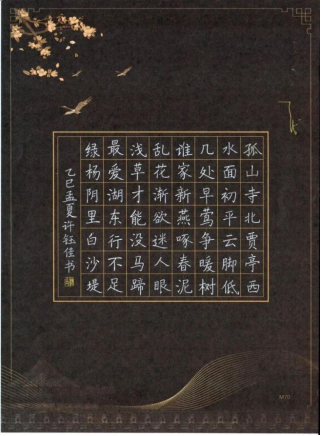 孤山寺北贾亭西
水面初平云脚低
几处早莺争暖树
谁家新燕啄春泥
乱花渐欲迷人眼
浅草才能没马蹄
最爱湖东行不足
绿杨阴里白沙堤
乙巳孟夏许钰佳书